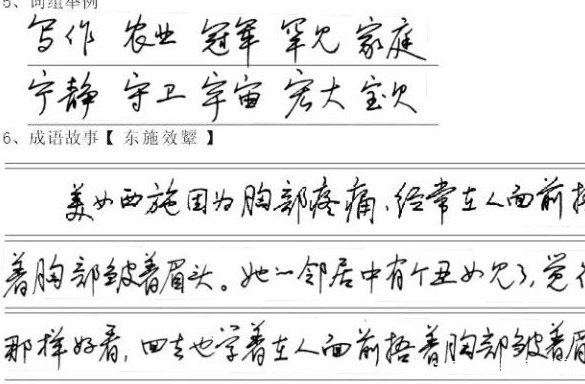 5、词组举例
写作 农业 冠军 罕见 家庭
宁静 守卫 宇宙 宏大 宝贝
6、成语故事【 东施效颦 】
美女西施因为胸部疼痛,经常在人面前捂
着胸部皱着眉头。她的邻居中有个丑女见了,觉得
那样好看,回去也学着在人面前捂着胸部皱着眉